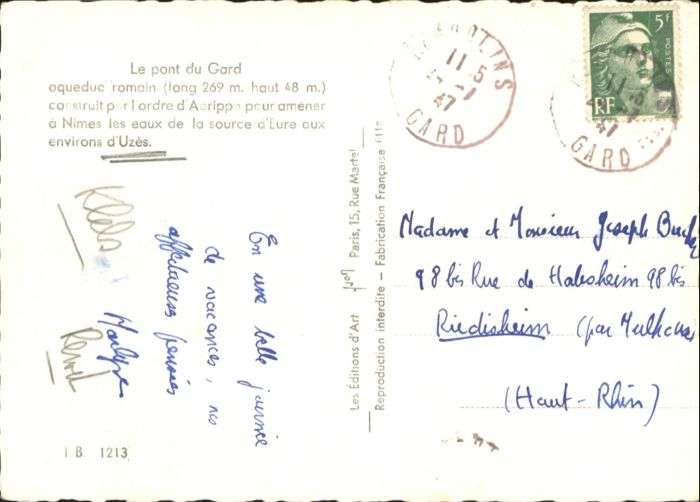 Le pont du Gard
aqueduc romain (long 269 m. haut 48 m.)
construit par l'ordre d'Agrippa pour amener
à Nîmes les eaux de la source d'Eure aux
environs d'Uzès.
En une belle journée
de vacances, nos
affectueuses pensées
I B. 1213
Les Éditions d'Art Yvon Paris, 15, Rue Martel
Reproduction interdite – Fabrication Française
11-5
47
GARD
5F
POSTES
RF
11-5
47
GARD
Madame et Monsieur Joseph
98 bis Rue de Habsheim 98 bis
Riedisheim (par Mulhouse
(Haut-Rhin)